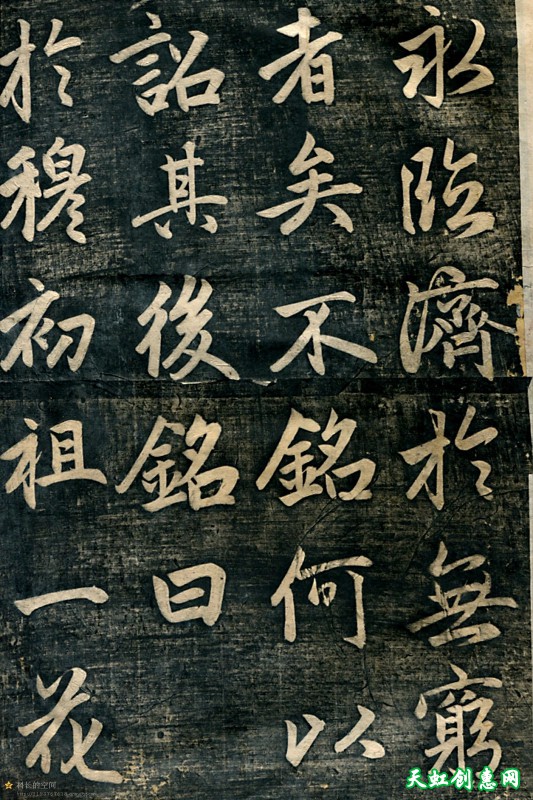 永臨濟於無窮
者矣不銘何以
詔其後銘曰
於穆初祖一花
天虹创惠网